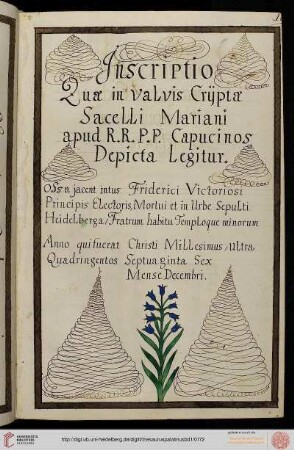 Inscriptio
Quæ in valvis Cryptæ
Sacelli Mariani
apud R.R.P.P. Capucinos
Depicta Legitur.
Ossa jacent intus Friderici Victoriosi
Principis Electoris, Mortui et in Urbe Sepulti
Heidelberga, Fratrum habitu Temploque minorum
Anno qui fuerat Christi Millesimus, ultra
Quadringentos Septuaginta Sex
Mense Decembri.
http://digi.ub.uni-heidelberg.de/diglit/thesauruspalatinusbd1/0173